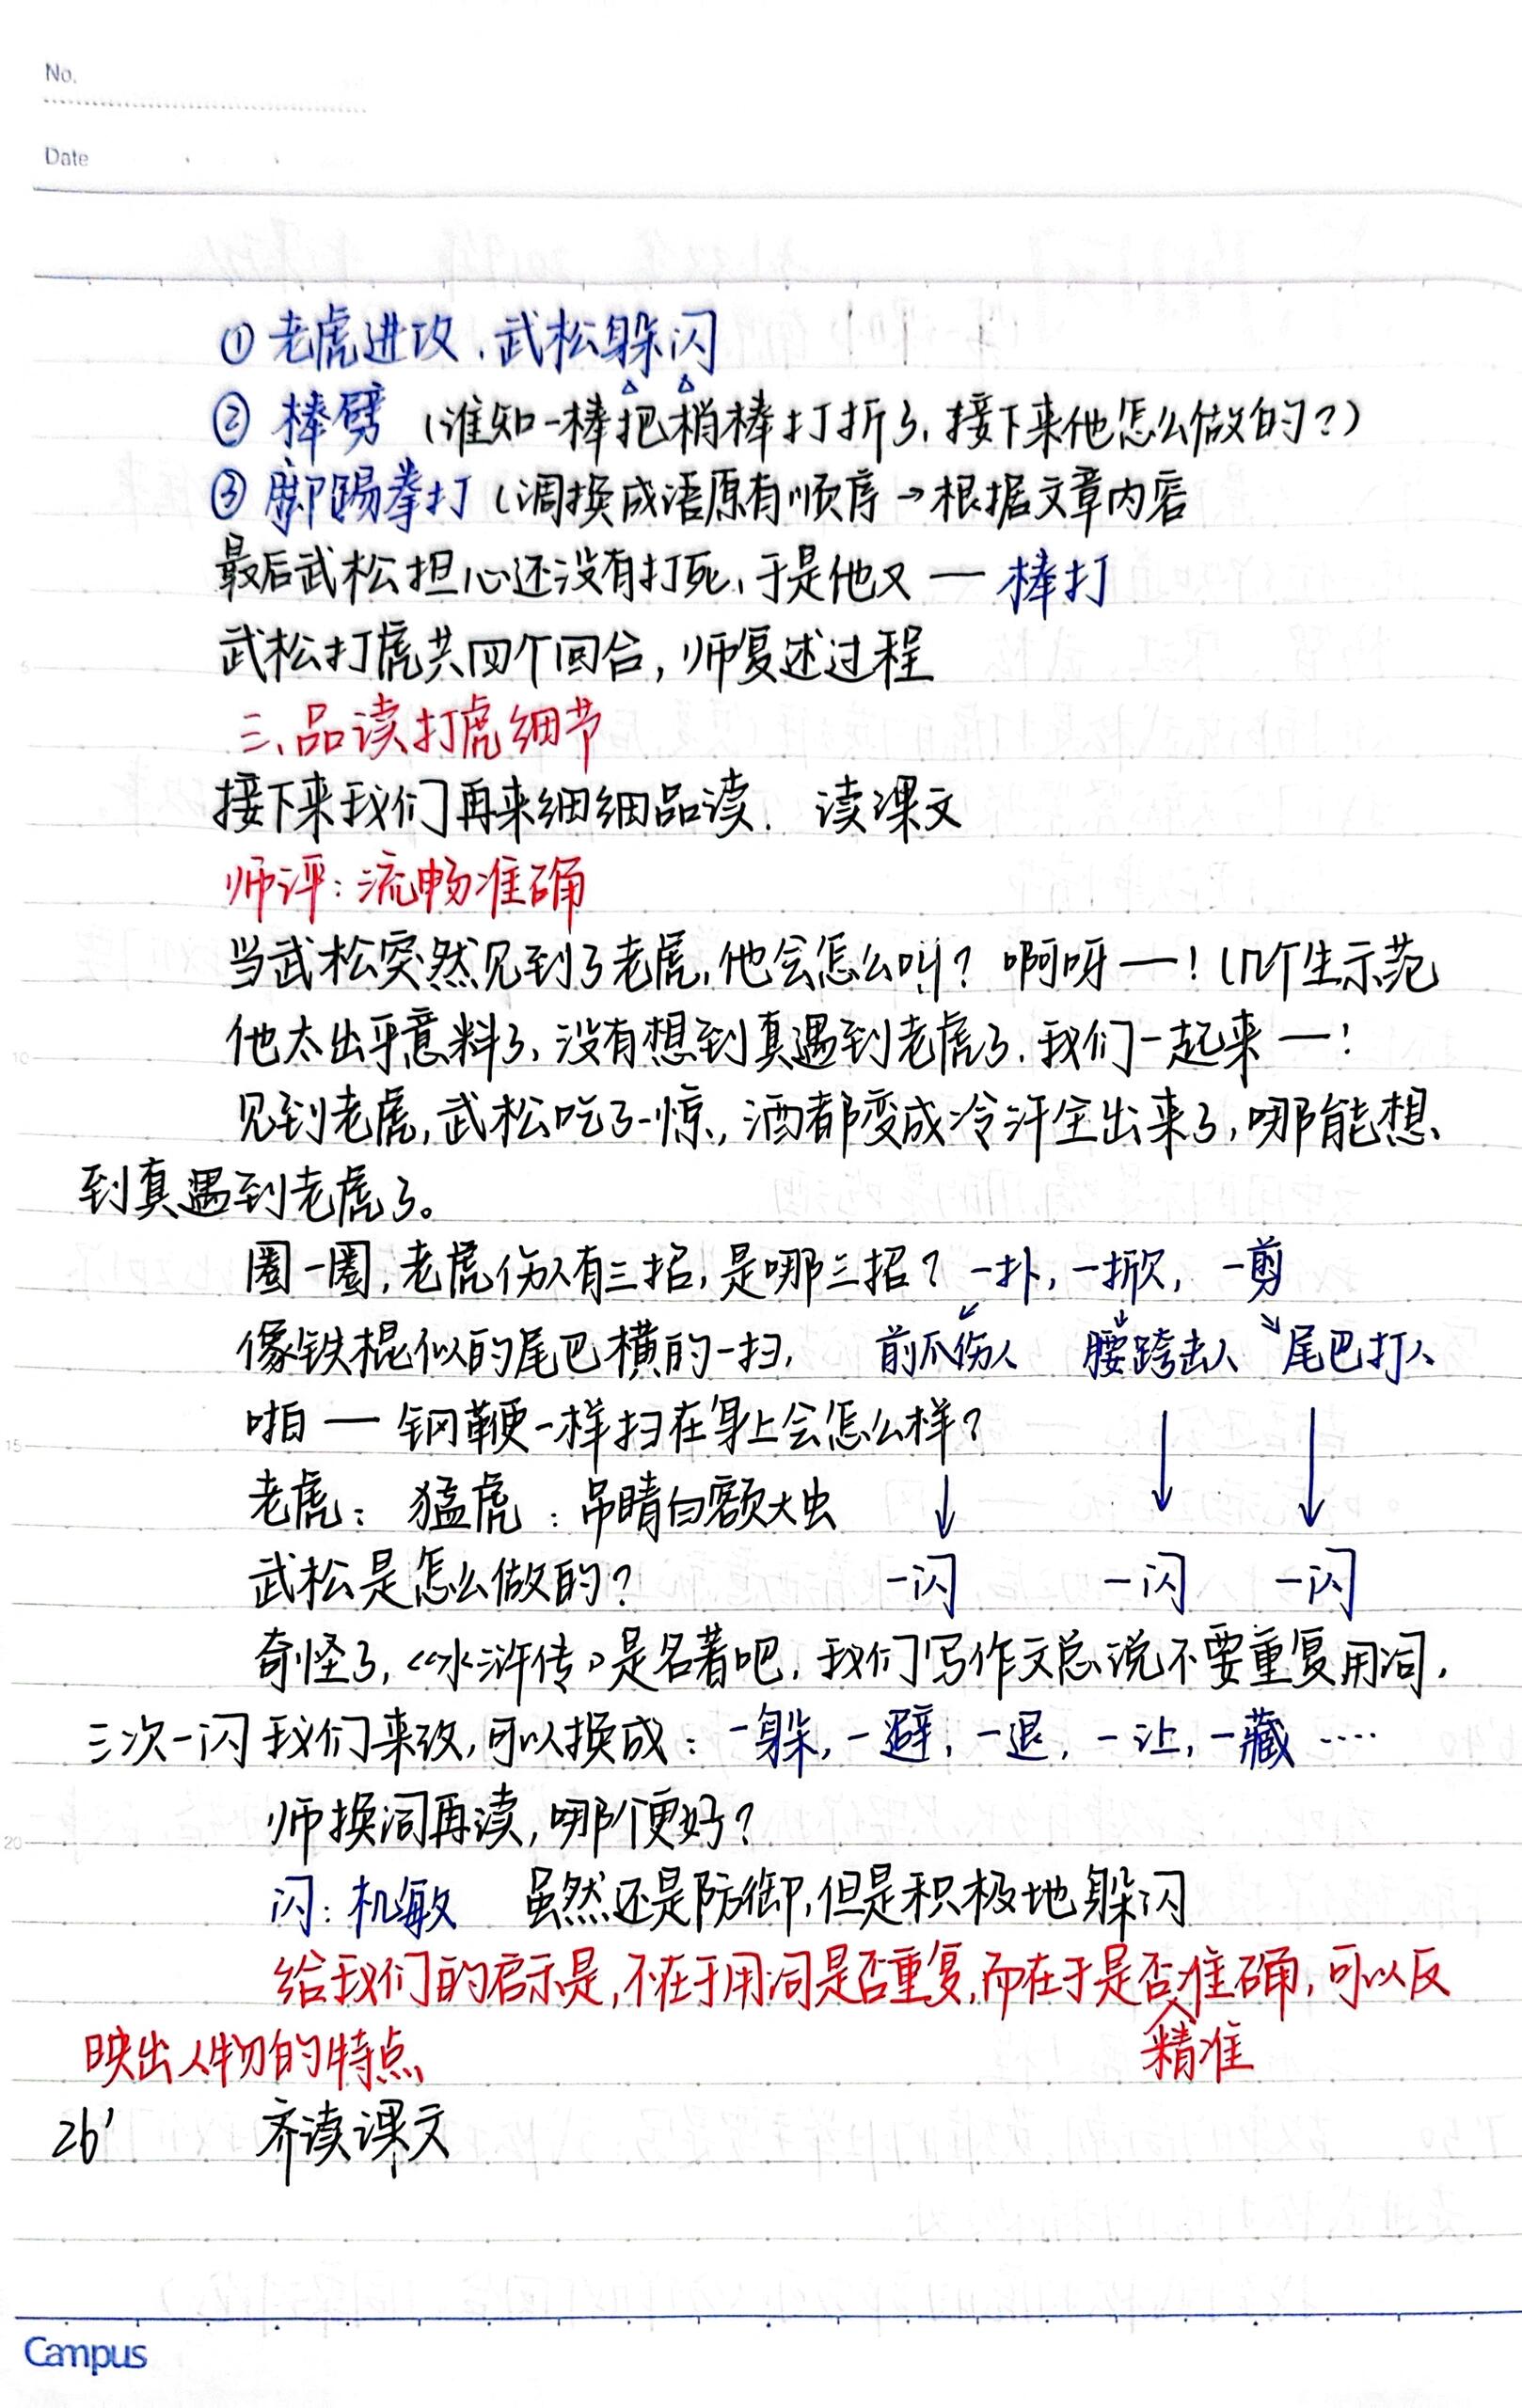 No.
Date
① 老虎进攻、武松躲闪
② 棒劈 (谁知一棒把梢棒打折了,接下来他怎么做的?)
③ 脚踢拳打 (调换成语原有顺序→根据文章内容
最后武松担心还没有打死,于是他又 — 棒打
武松打虎共四个回合,师复述过程
三、品读打虎细节
接下来我们再来细细品读. 读课文
师评:流畅准确
当武松突然见到了老虎,他会怎么叫? 啊呀—! (几个生示范
他太出乎意料了,没有想到真遇到老虎了.我们一起来—!
见到老虎,武松吃了一惊,酒都变成冷汗全出来了,哪能想
到真遇到老虎了。
圈一圈,老虎伤人有三招,是哪三招? 一扑, 一掀, 一剪
像铁棍似的尾巴横的一扫, 前爪伤人 腰跨击人 尾巴打人
啪 — 钢鞭一样扫在身上会怎么样?
老虎: 猛虎:吊睛白额大虫
武松是怎么做的? 一闪 一闪 一闪
奇怪了,《水浒传》是名著吧,我们写作文总说不要重复用词,
三次一闪我们来改,可以换成:一躲,一避,一退,一让,一藏 ····
师换词再读,哪个更好?
闪:机敏 虽然还是防御,但是积极地躲闪
给我们的启示是,不在于用词是否重复,而在于是否准确,可以反
精准
映出人物的特点
26' 齐读课文
Campus
5
10
15
20